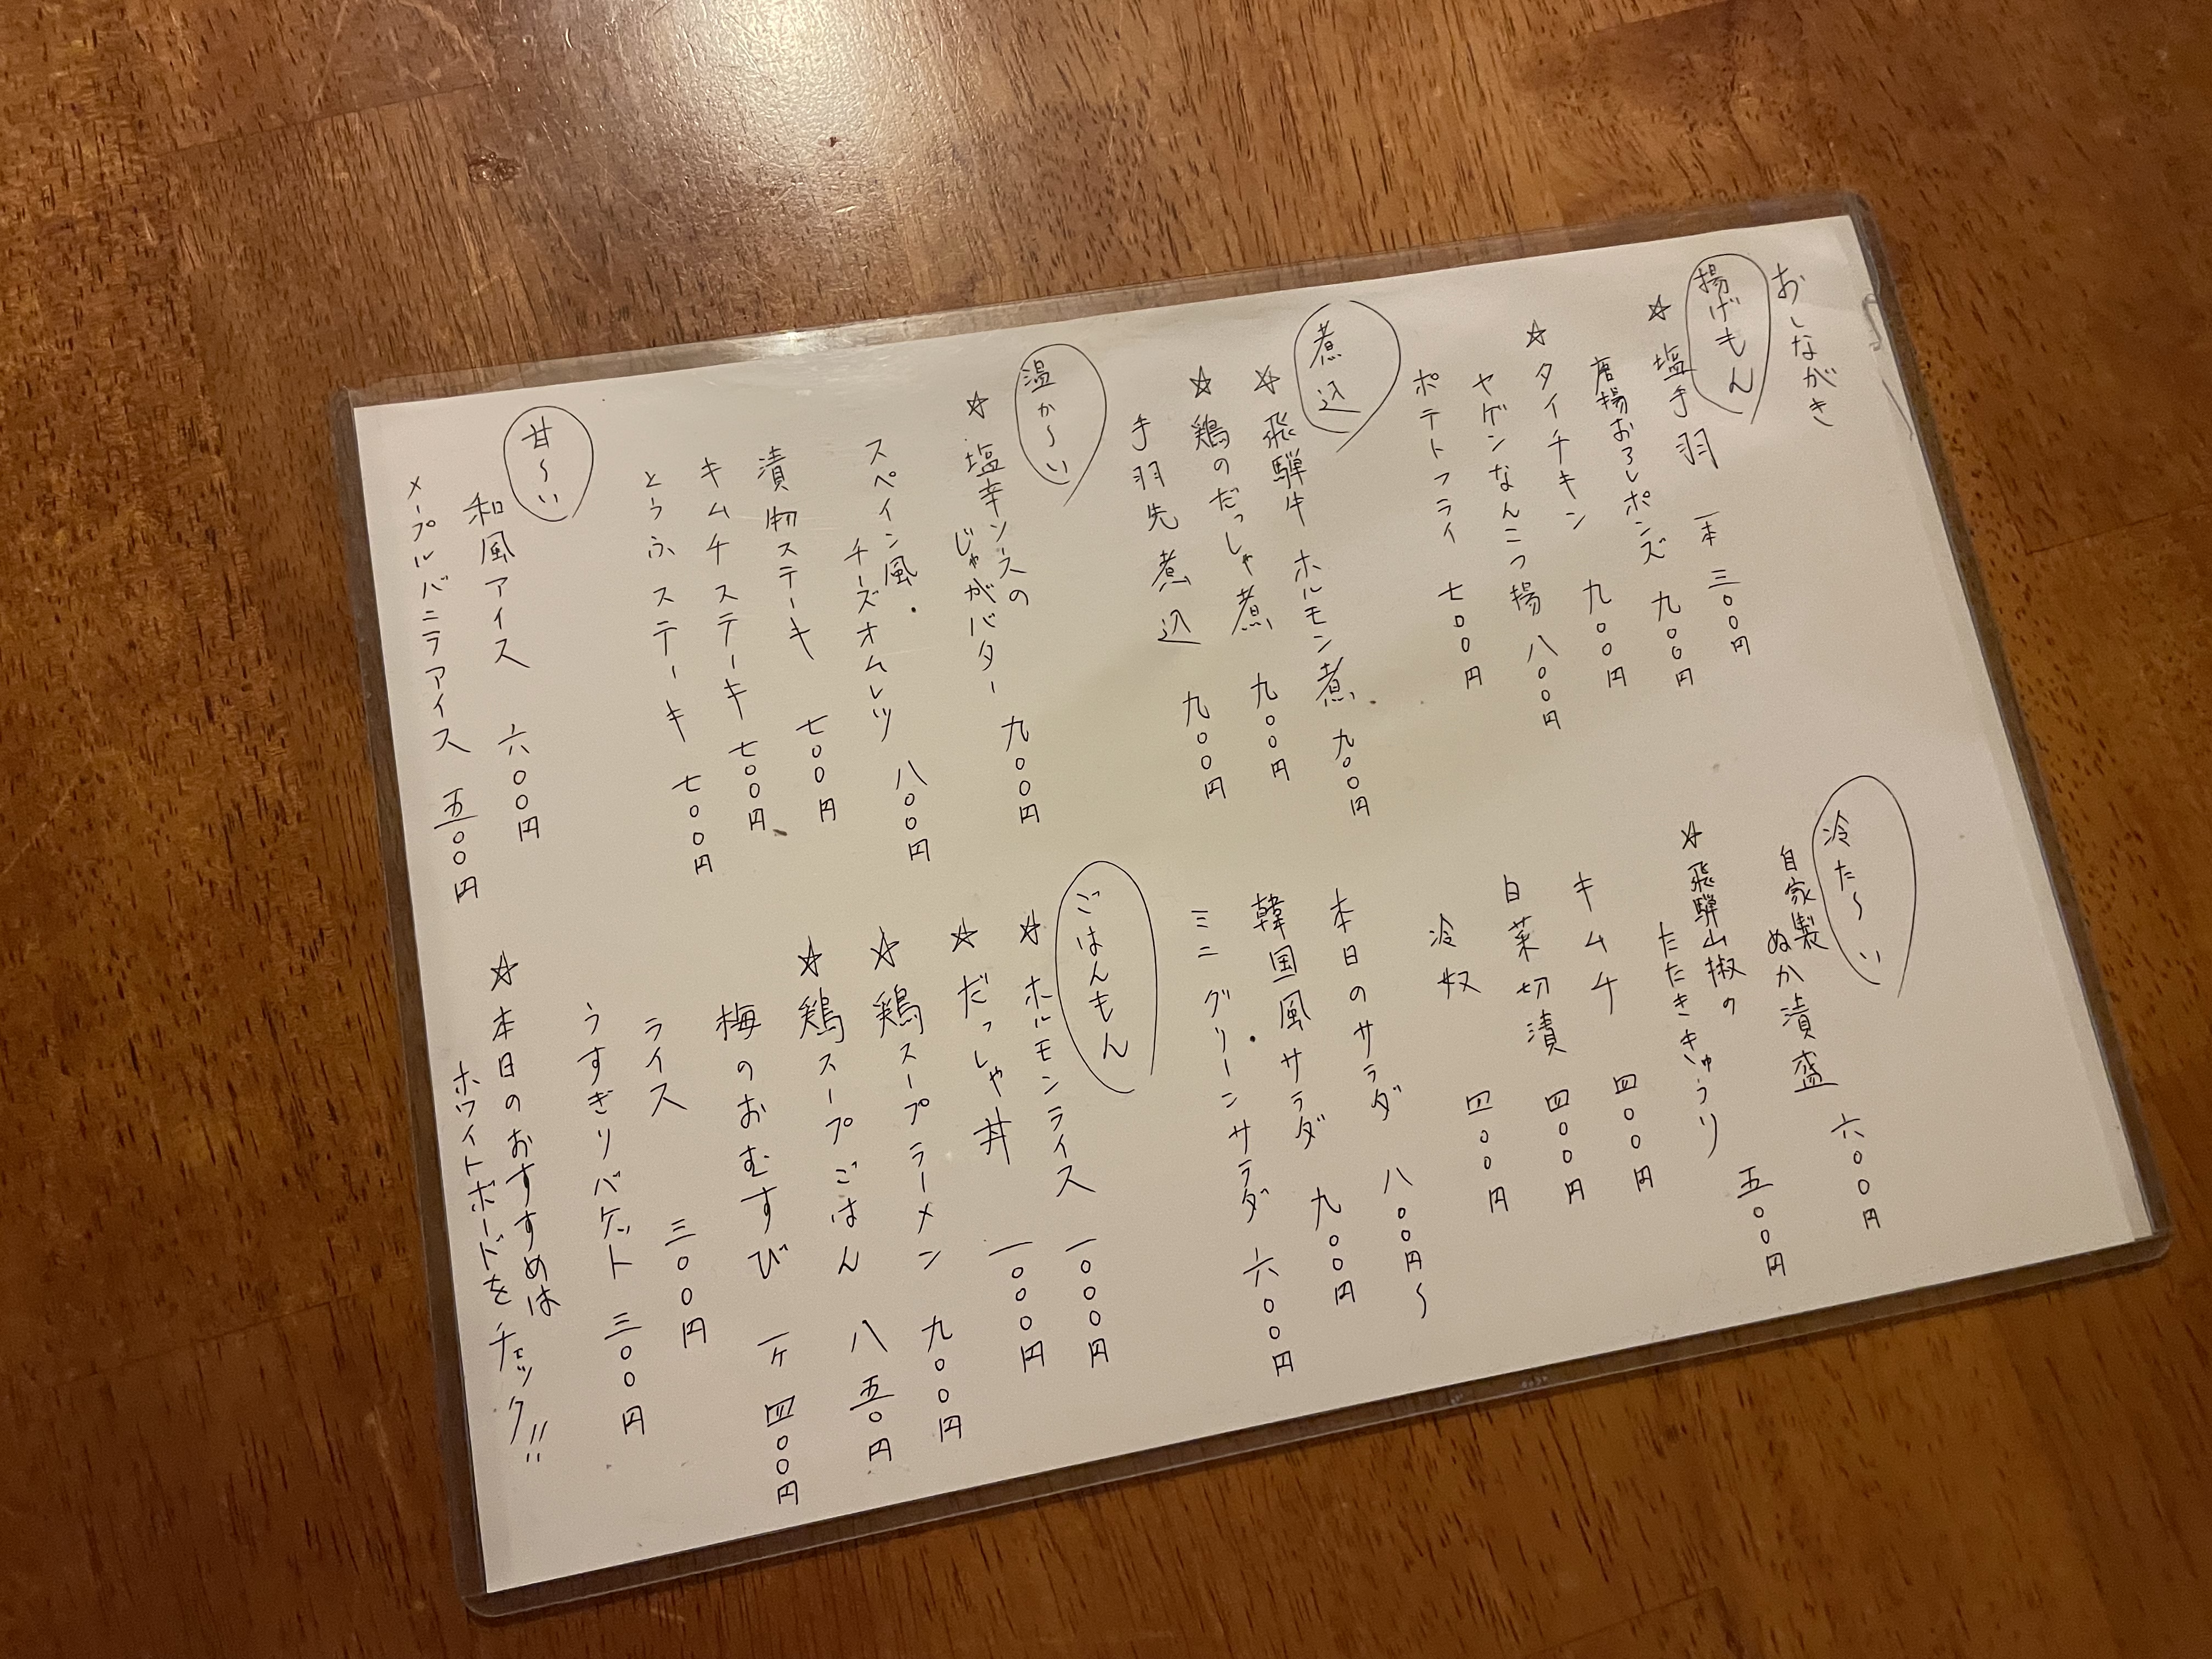 おしながき
揚げもん
☆塩手羽 一本 三〇〇円
唐揚おろしポンズ 九〇〇円
☆タイチキン 九〇〇円
ヤゲンなんこつ揚 八〇〇円
ポテトフライ 七〇〇円
煮込
☆飛騨牛ホルモン煮 九〇〇円
☆鶏のだっしゃ煮 九〇〇円
手羽先煮込 九〇〇円
温か〜い
☆塩辛ソースの
じゃがバター 九〇〇円
スペイン風
チーズオムレツ 八〇〇円
漬物ステーキ 七〇〇円
キムチステーキ 七〇〇円
とうふステーキ 七〇〇円
甘〜い
和風アイス 六〇〇円
メープルバニラアイス 五〇〇円
冷た〜い
自家製
ぬか漬盛 六〇〇円
☆飛騨山椒の
たたききゅうり 五〇〇円
キムチ 四〇〇円
白菜切漬 四〇〇円
冷奴 四〇〇円
本日のサラダ 八〇〇円〜
韓国風サラダ 九〇〇円
ミニグリーンサラダ 六〇〇円
ごはんもん
☆ホルモンライス 一〇〇〇円
☆だっしゃ丼 一〇〇〇円
☆鶏スープラーメン 九〇〇円
☆鶏スープごはん 八五〇円
梅のおむすび 一ケ 四〇〇円
ライス 三〇〇円
うすぎりバケット 三〇〇円
☆本日のおすすめは
ホワイトボードをチェック!!